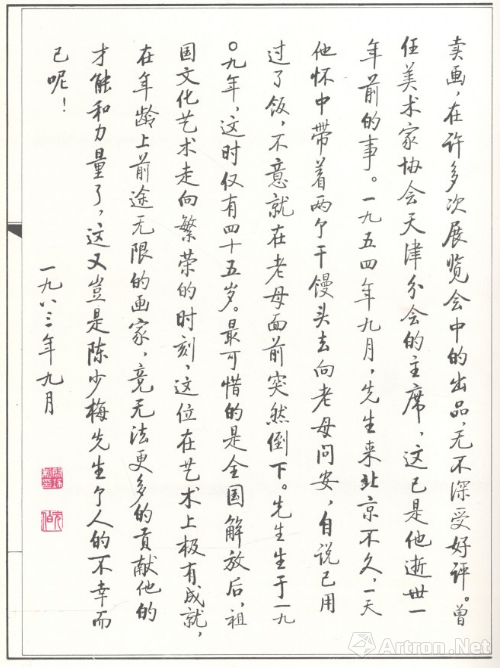 卖画，在许多次展览会中的出品，无不深受好评。曾
任美术家协会天津分会的主席，这已是他逝世一
年前的事。一九五四年九月，先生来北京不久，一天
他怀中带着两个干馒头去向老母问安，自说已用
过了饭，不意就在老母面前突然倒下。先生生于一九
〇九年，这时仅有四十五岁。最可惜的是全国解放后，祖
国文化艺术走向繁荣的时刻，这位在艺术上极有成就，
在年龄上前途无限的画家，竟无法更多的贡献他的
才能和力量了，这又岂是陈少梅先生个人的不幸而
已呢！
一九八三年九月
Artron.Net